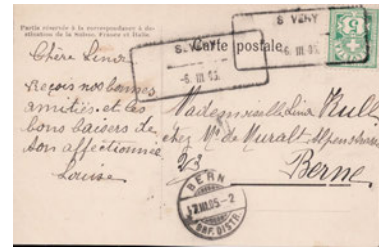 Partie réservée à la correspondance à destination de la Suisse, France et Italie.
Carte postale
S. VERY
-6. III. 05.
S VERY
-6. III. 05.
5
Chère Lina
Reçois nos bonnes
amitiés et les
bons baisers de
ton affectionnée
Louise
Mademoiselle Lina Kull
chez Mr de Muralt Alpenstrasse
23
Berne
BERN
7.III.05.-2
BRF. DISTR.